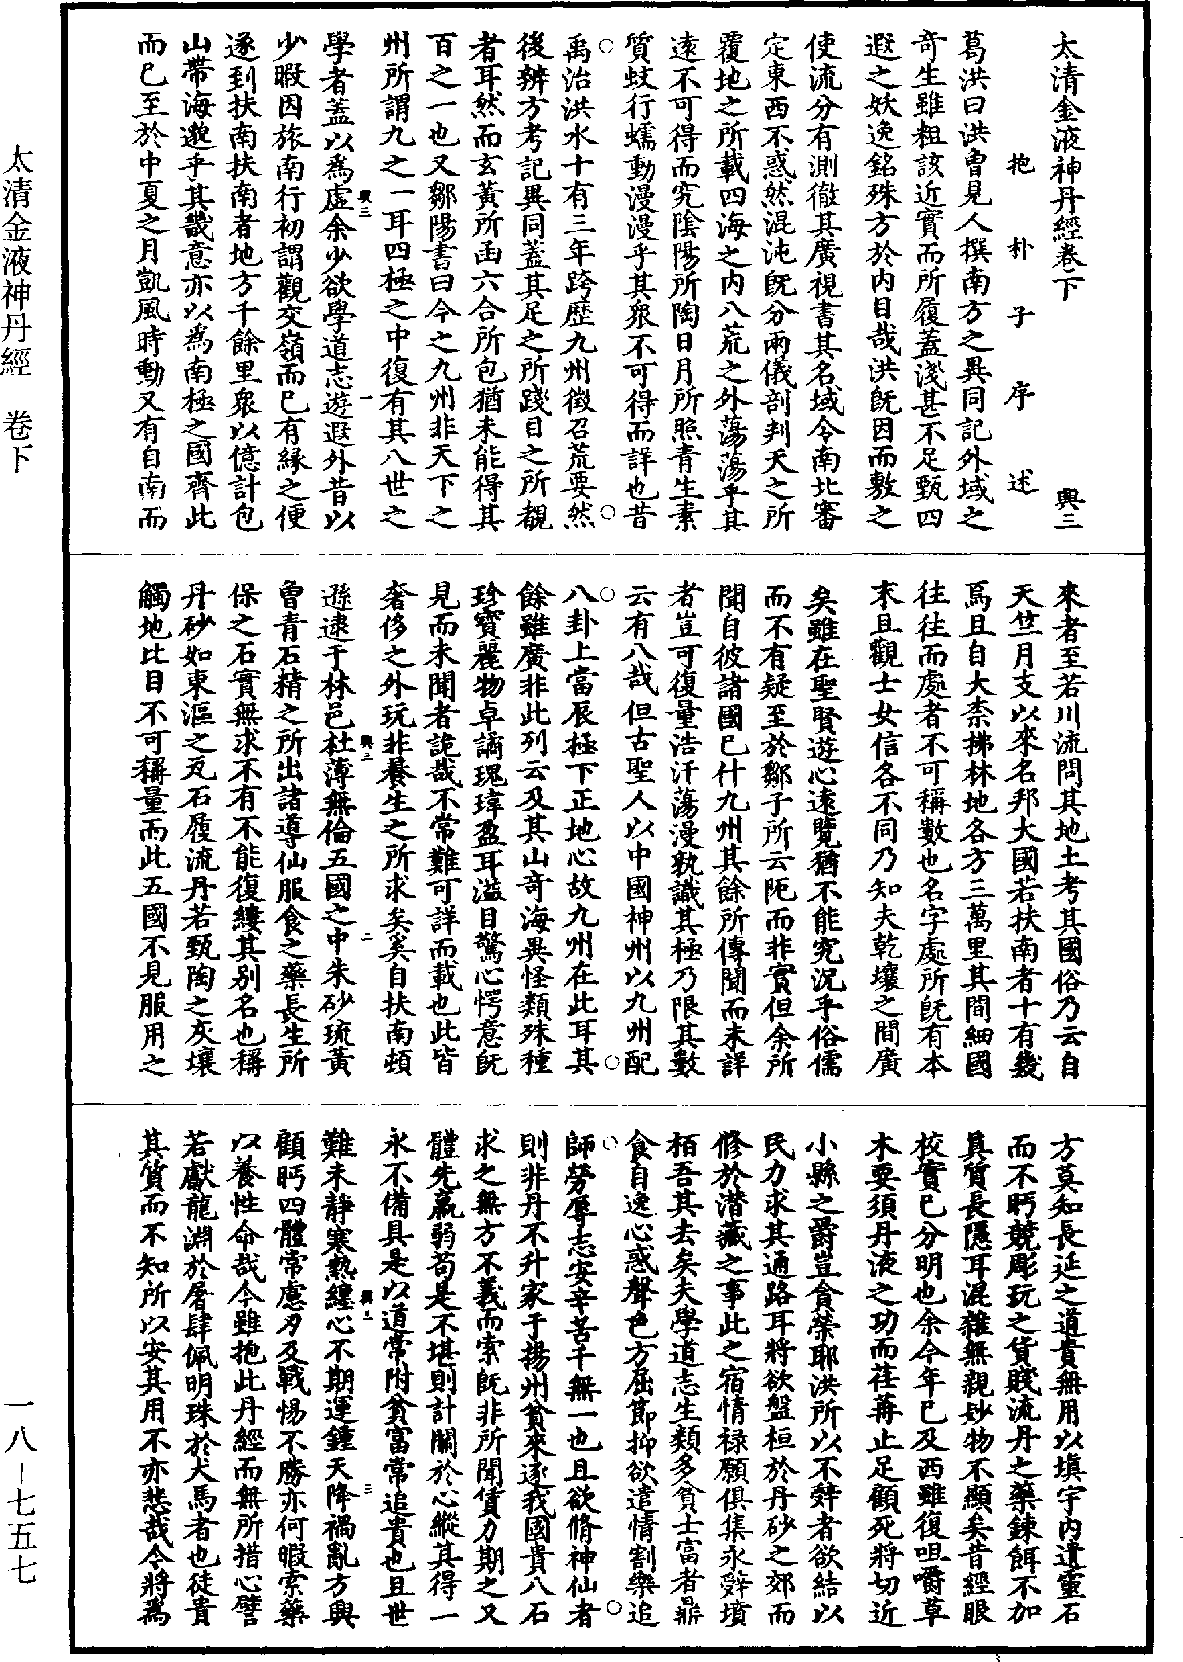 太清金液神丹經卷下
興三
抱朴子序述
葛洪曰洪曾見人撰南方之異同記外域之
奇生雖粗該近實而所履蓋淺甚不足甄四
遐之妖逸銘殊方於內目哉洪既因而敷之
使流分有測徹其廣視書其名域令南北審
定東西不惑然混沌既分兩儀剖判天之所
覆地之所載四海之內八荒之外蕩蕩乎其
遠不可得而究陰陽所陶日月所照青生素
質蚑行蠕動漫漫乎其衆不可得而詳也昔
禹治洪水十有三年跨歷九州徵召荒要然
後辨方考記異同蓋其足之所踐目之所覩
者耳然而玄黃所函六合所包猶未能得其
百之一也又鄒陽書曰今之九州非天下之
州所謂九之一耳四極之中復有其八世之
學者蓋以為虛余少欲學道志遊遐外昔以
少暇因旅南行初謂觀交嶺而已有緣之便
遂到扶南扶南者地方千餘里衆以億計包
山帶海邈乎其畿意亦以為南極之國齊此
而已至於中夏之月凱風時動又有自南而
來者至若川流問其地土考其國俗乃云自
天竺月支以來名邦大國若扶南者十有幾
焉且自大柰拂林地各方三萬里其間細國
往往而處者不可稱數也名字處所既有本
末且觀士女信各不同乃知夫乾壤之間廣
矣雖在聖賢遊心遠覽猶不能究況乎俗儒
而不有疑至於鄒子所云阨而非實但余所
聞自彼諸國已什九州其餘所傳聞而未詳
者豈可復量浩汗蕩漫孰識其極乃限其數
云有八哉但古聖人以中國神州以九州配
八卦上當辰極下正地心故九州在此耳其
餘雖廣非此列云及其山奇海異怪類殊種
珍寶麗物卓譎瑰瑋盈耳溢目驚心愕意既
見而未聞者詭哉不常難可詳而載也此皆
奢侈之外玩非養生之所求矣奚自扶南頓
遜逮于林邑杜薄無倫五國之中朱砂琉黃
曾青石精之所出諸導仙服食之藥長生所
保之石實無求不有不能復縷其別名也稱
丹砂如東漚之瓦石履流丹若甄陶之灰壤
觸地比目不可稱量而此五國不見服用之
方莫知長延之道貴無用以填宇內遺靈石
而不眄競彫玩之貨賤流丹之藥鍊餌不加
真質長隱耳混雜無親妙物不顯矣昔經眼
校實已分明也余今年已及西雖復咀嚼草
木要須丹液之功而荏苒止足顧死將切近
小縣之爵豈貪榮耶洪所以不辭者欲結以
民力求其通路耳將欲盤桓於丹砂之郊而
修於潛藏之事此之宿情祿願俱集永辭墳
栢吾其去矣夫學道志生類多貧士富者鼎
食自逸心惑聲色方屈節抑欲遣情割樂追
師勞辱志安辛苦千無一也且欲脩神仙者
則非丹不升家于揚州貧來遂我國貴八石
求之無方不義而索既非所聞債力期之又
體先羸弱苟是不堪則計闌於心縱其得一
永不備具是以道常附貧富常追貴也且世
難未靜寒熱纏心不期運鍾天降禍亂方興
顧眄四體常慮刃及戰惕不勝亦何暇索藥
以養性命哉今雖抱此丹經而無所措心譬
若獻龍淵於屠肆佩明珠於犬馬者也徒貴
其質而不知所以安其用不亦悲哉今將為
興三
一
興三
二
興三
三
太清金液神丹經 卷下
一八—七五七